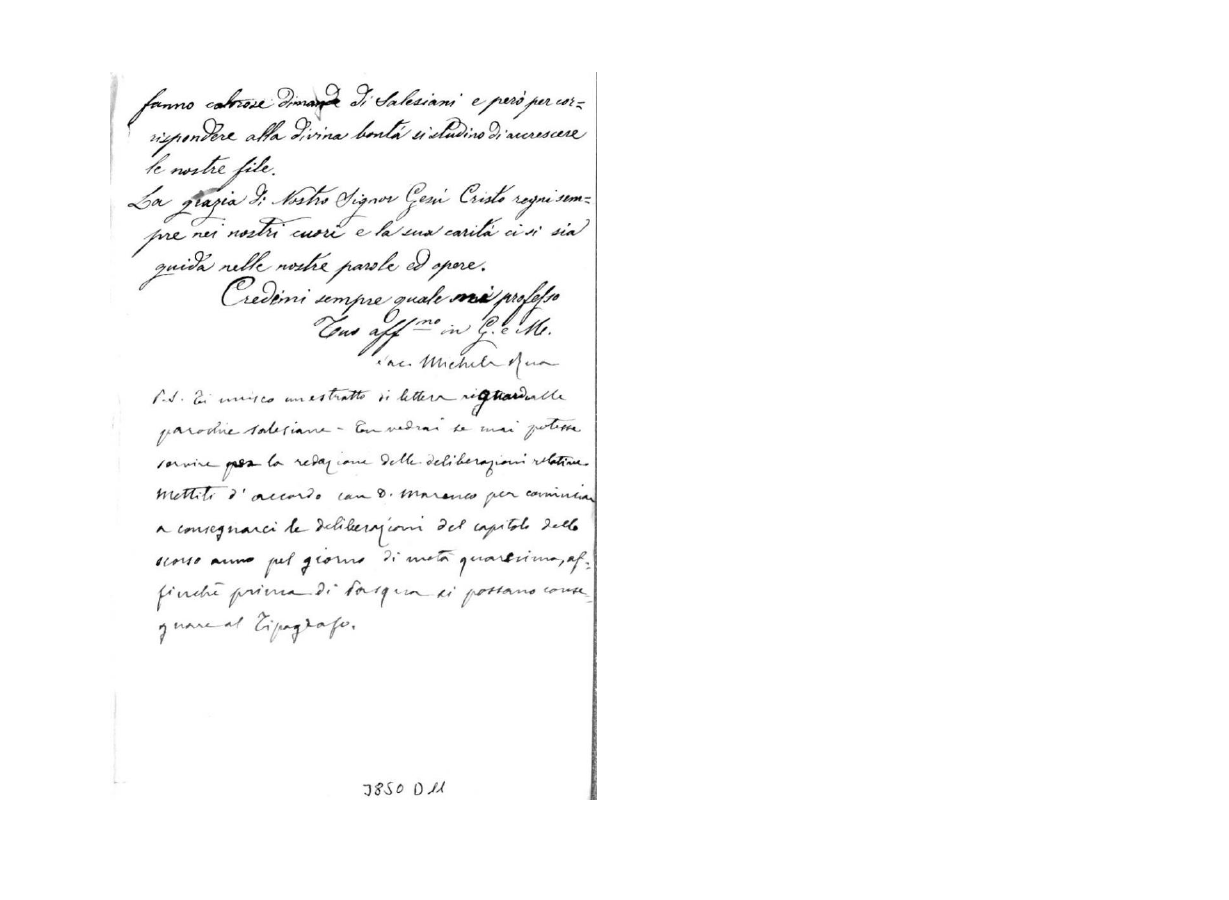 fanno calorose dimande di Salesiani e però per cor=
rispondere alla divina bontà si studino di accrescere
le nostre file.
La grazia di Nostro Signor Gesù Cristo regni sem=
pre nei nostri cuori e la sua carità ci si sia
guida nelle nostre parole ed opere.
Credimi sempre quale mi professo
Tuo aff.mo in G. e M.
Sac. Michele Rua
P.S. Ti unisco un estratto di lettera riguardo alle
parochie salesiane - Tu vedrai se mai potesse
servire per la redazione delle deliberazioni relative
Mettiti d'accordo con D. Marenco per cominciar
a consegnarci le deliberazioni del capitolo dello
scorso anno pel giorno di metà quaresima, af-
finchè prima di Pasqua si possano conse
gnare al Tipografo.
3850 D 11